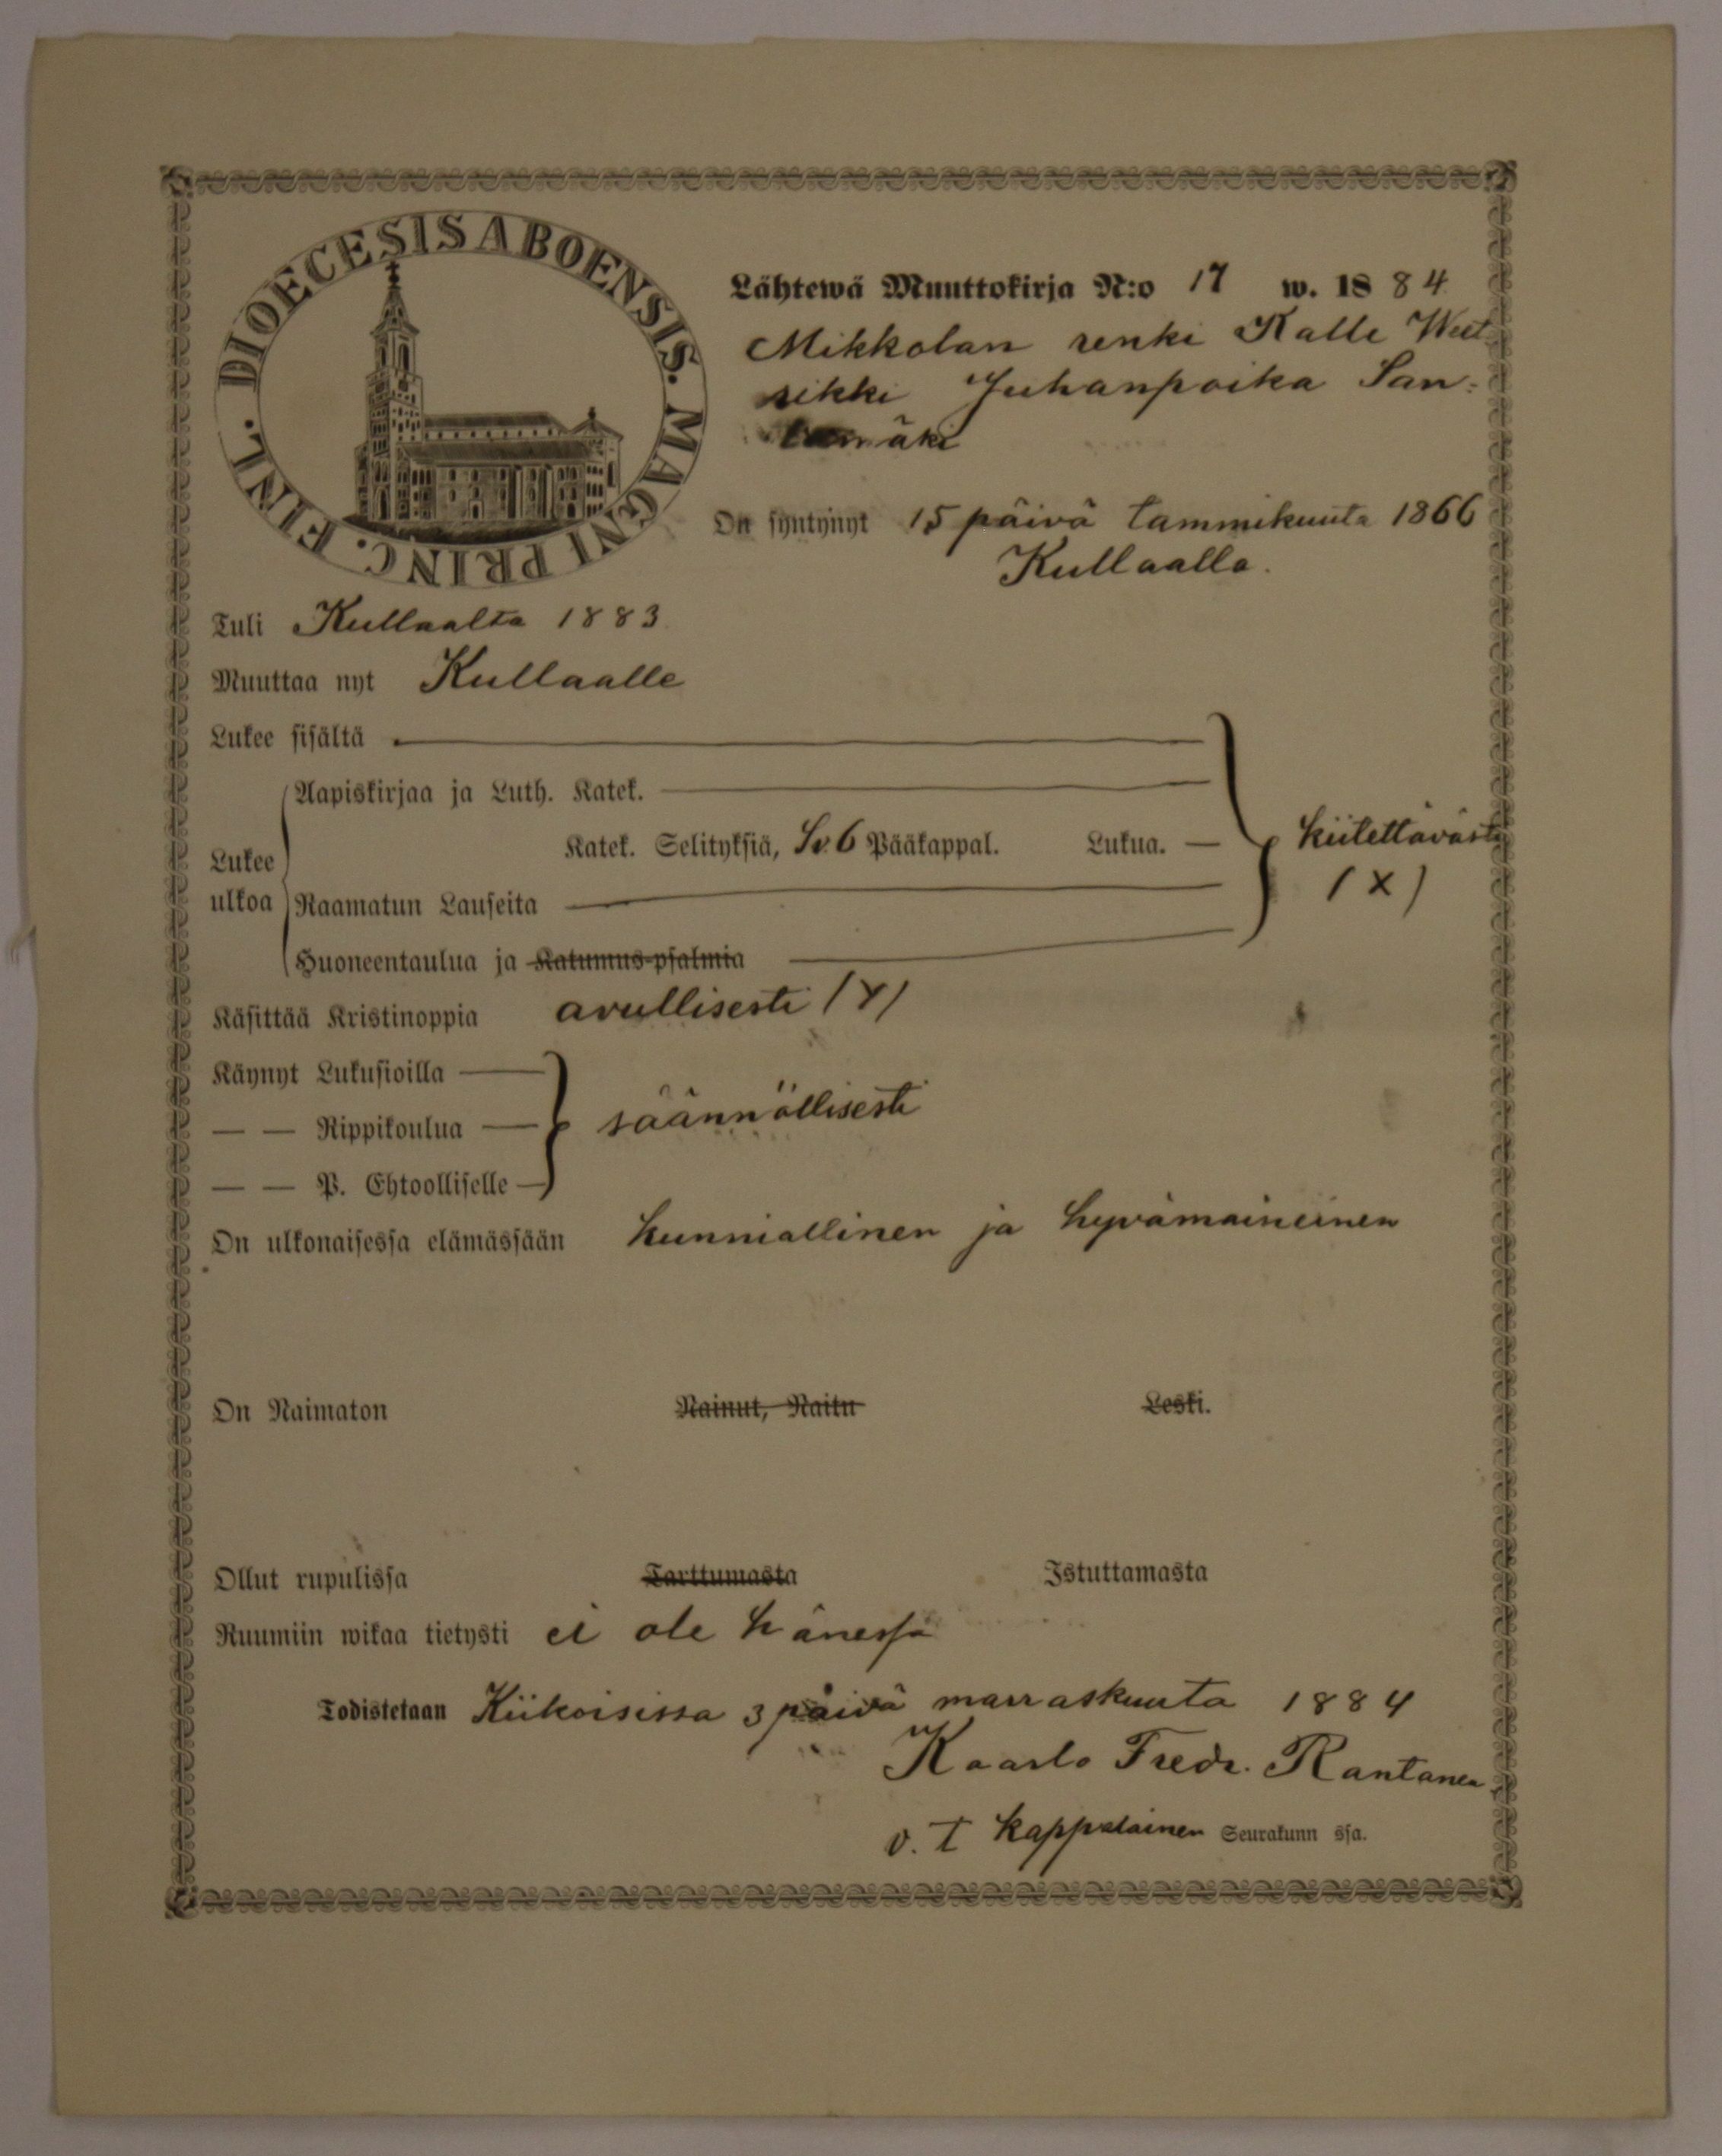 DIOECESIS ABOENSIS. MAGNI PRINC. FINL.
Lähtewä Muuttokirja N:o 17 w. 1884
Mikkolan renki Kalle West
rikki Juhanpoika San-
mäki
On syntynyt 15 päivä tammikuuta 1866
Kullaalla.
Tuli Kullaalta 1883
Muuttaa nyt Kullaalle
Lukee sisältä
Aapiskirjaa ja Luth. Katek.
Katek. Selityksiä, Sv. 6 Pääkappal. Lukua. — kiitettävästi
Lukee
ulkoa Raamatun Lauseita (X)
Huoneentaulua ja Katumus-psalmia
Käsittää Kristinoppia avullisesti (Y)
Käynyt Lukusioilla —
— — Rippikoulua — säännöllisesti
— — P. Ehtoolliselle —
On ulkonaisessa elämässään kunniallinen ja hyvämaineinen
On Naimaton Nainut, Naitu Leski.
Ollut rupulissa Tarttumasta Istuttamasta
Ruumiin wikaa tietysti ei ole hänessä
Todistetaan Kiikoisissa 3 päivä marraskuuta 1884
Kaarlo Fredr. Rantanen
v. t kappalainen Seurakunn ssa.